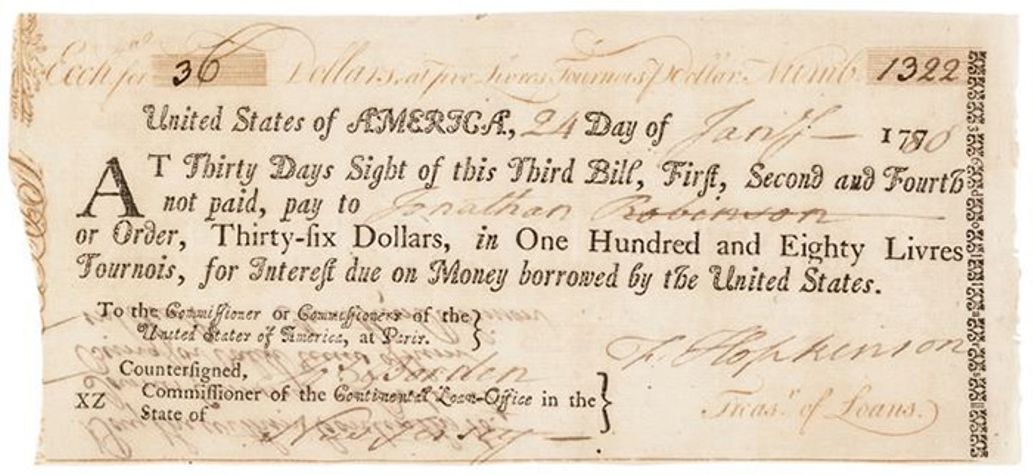 Exch for 36 Dollars, at five Livres Tournois ⅌ Dollar. Numb. 1322
United States of AMERICA, 24 Day of Jany 1780
AT Thirty Days Sight of this Third Bill, Firſt, Second and Fourth
not paid, pay to Jonathan Robinson
or Order, Thirty-ſix Dollars, in One Hundred and Eighty Livres
Tournois, for Intereſt due on Money borrowed by the United States.
To the Commiſſioner or Commiſſioners of the
United States of America, at Paris.
F. Hopkinson
Treasr. of Loans.
Counterſigned,
Borden
XZ Commiſſioner of the Continental Loan-Office in the
State of
New Jersey